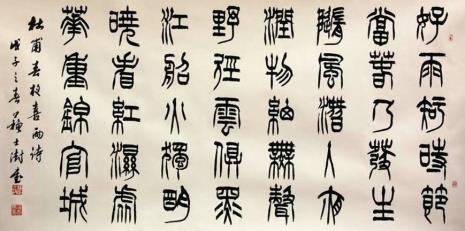 好雨知時節
當春乃發生
隨風潛入夜
潤物細無聲
野徑雲俱黑
江船火獨明
曉看紅濕處
華重錦官城
杜甫春夜喜雨詩
戊子之春蘇士澍書